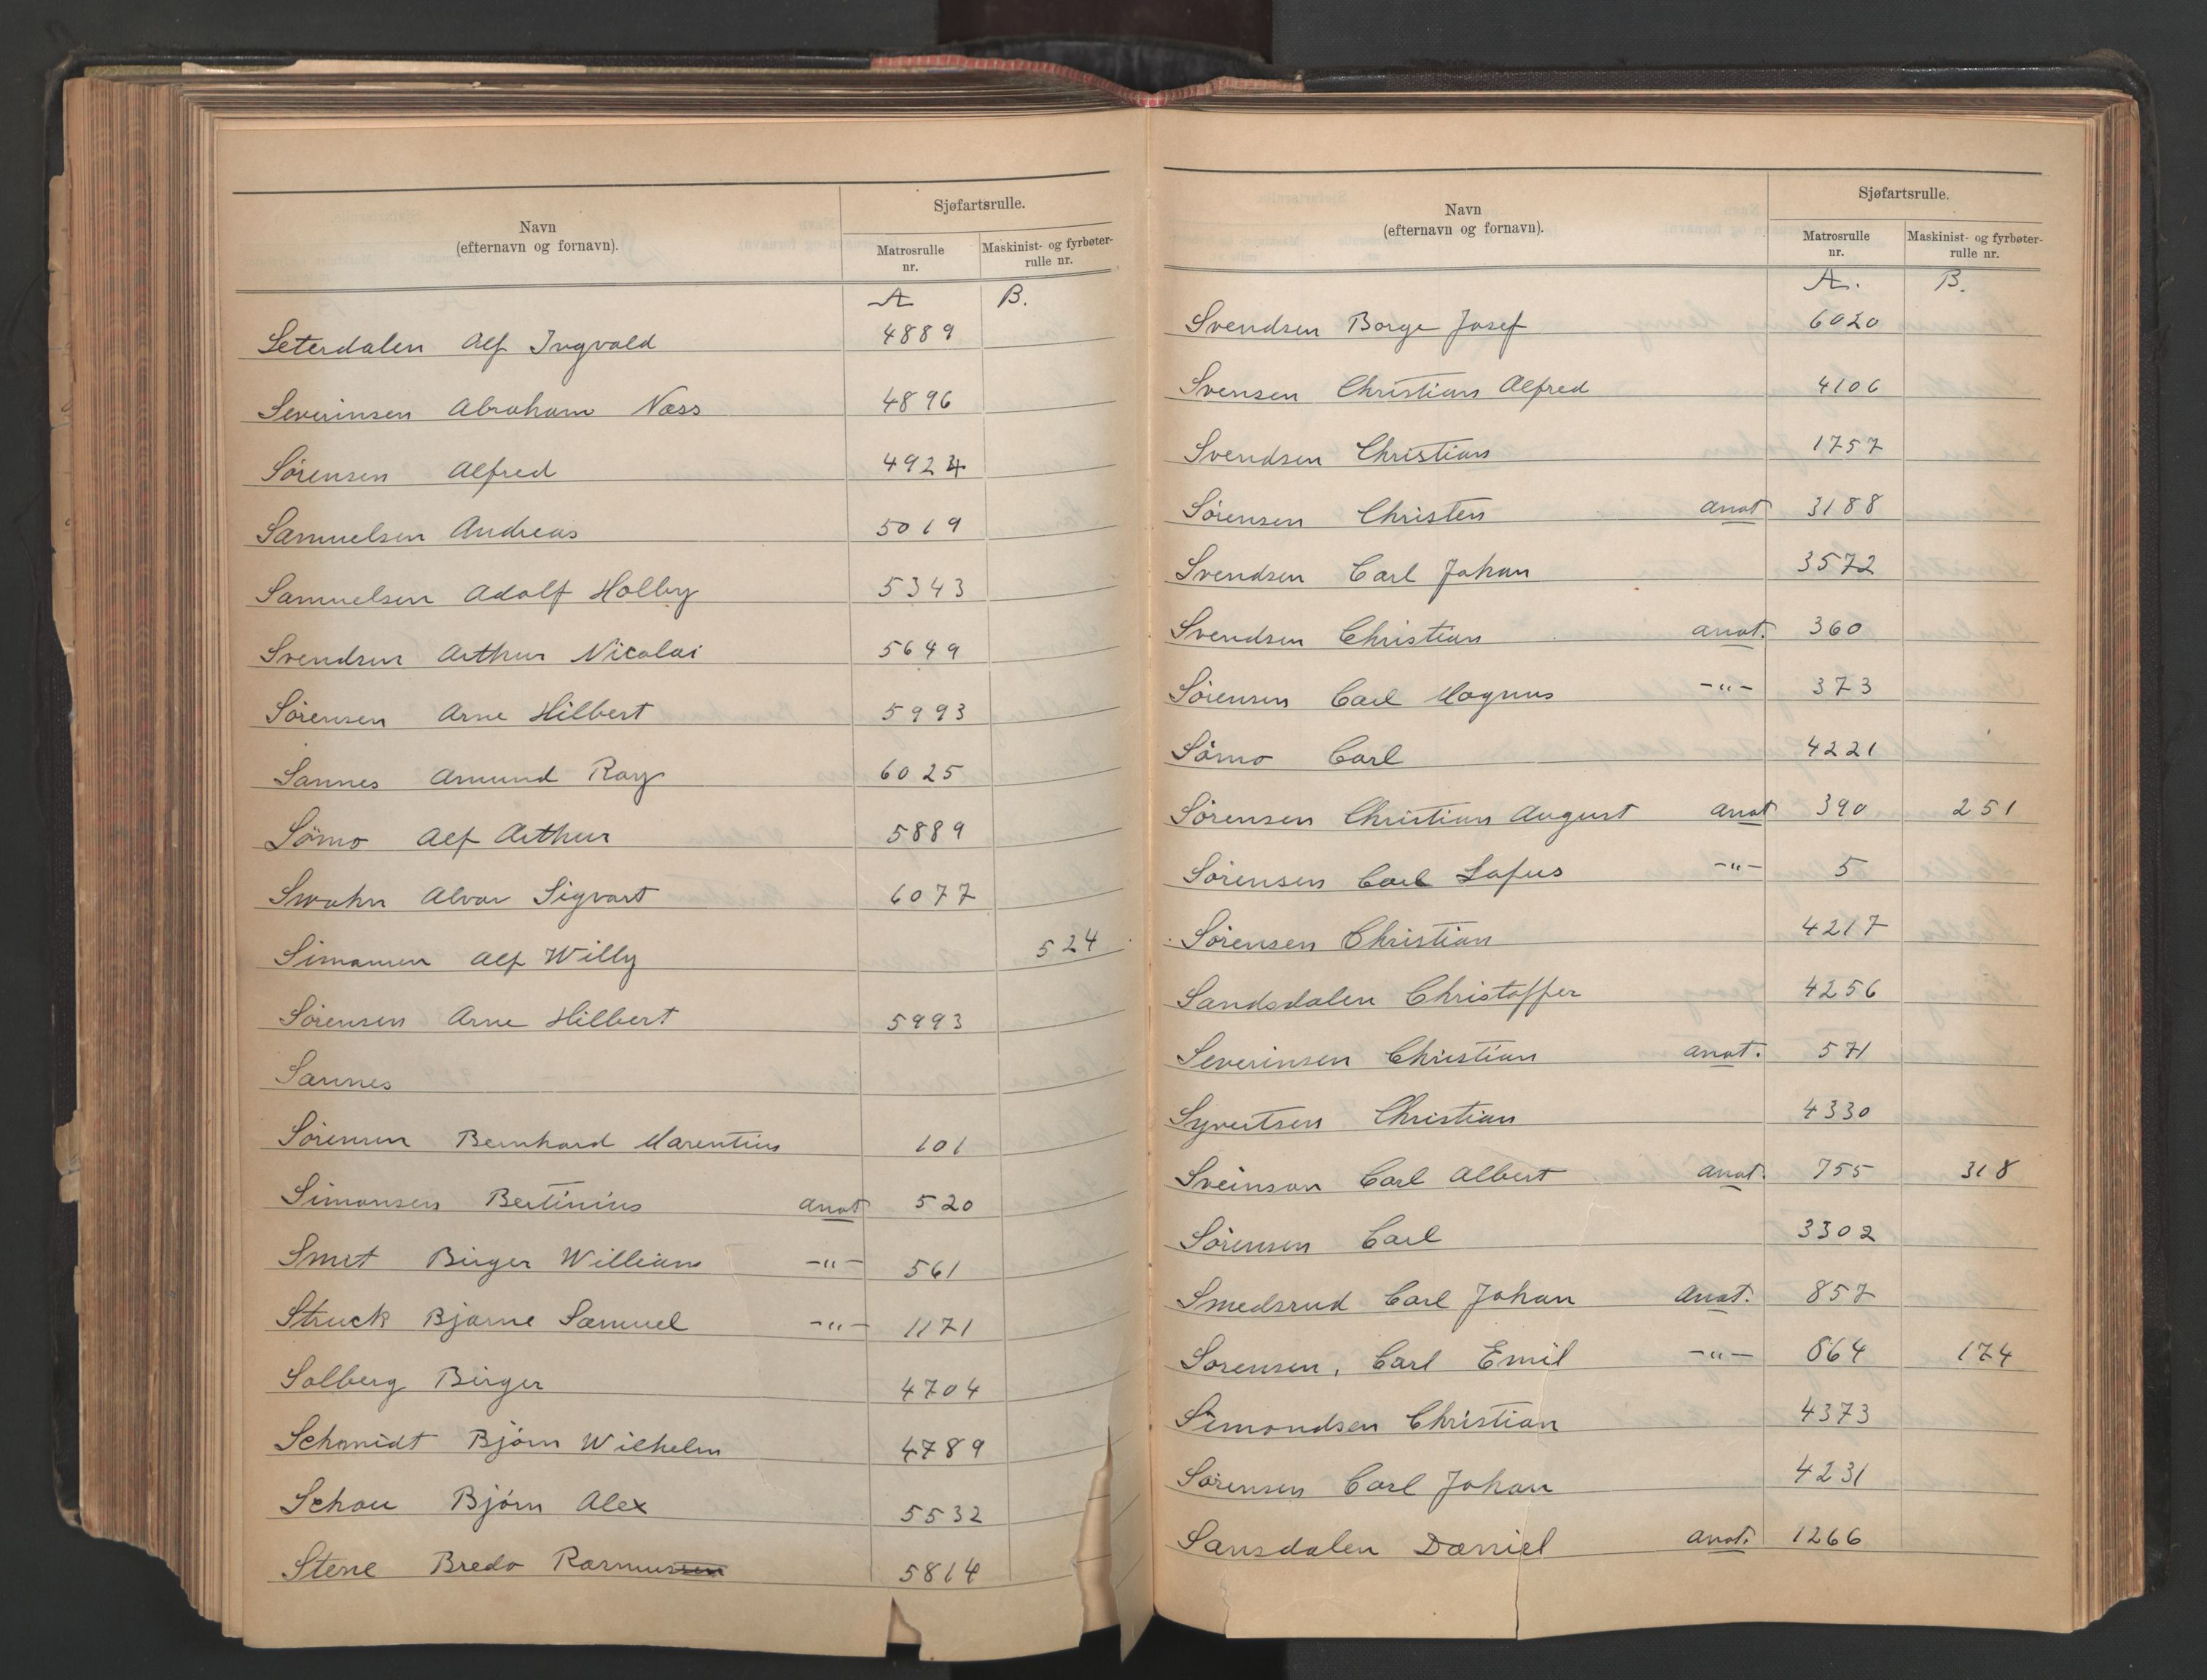 Navn
(efternavn og fornavn).
Sjøfartsrulle.
Matrosrulle nr.
Maskinist- og fyrbøter-rulle nr.
A B.
Seterdalen Alf Ingvald 4889
Severinsen Abraham Næss 4896
Sørensen Alfred 4924
Samuelsen Andreas 5019
Samuelsen Adolf Holby 5343
Svendsen Arthur Nicolai 5649
Sørensen Arne Hilbert 5993
Sannes Amund Roy 6025
Sørmo Alf Arthur 5889
Swahn Alvar Sigvart 6077
Simonsen Alf Willy 524
Sørensen Arne Hilbert 5993
Sannes
Sørensen Bernhard Marentius 101
Simonsen Bertinius anot 520
Smet Birger William -"- 561
Struck Bjarne Samuel -"- 1171
Solberg Birger 4704
Schmidt Bjørn Wilhelm 4789
Schou Bjørn Alex 5532
Stene Bredo Rasmussen 5814
Navn
(efternavn og fornavn).
Sjøfartsrulle.
Matrosrulle nr.
Maskinist- og fyrbøter-rulle nr.
A. B.
Svendsen Borge Josef 6020
Svensen Christian Alfred 4106
Svendsen Christian 1757
Sørensen Christen anot 3188
Svendsen Carl Johan 3572
Svendsen Christian anot. 360
Sørensen Carl Magnus -"- 373
Sørmo Carl 4221
Sørensen Christian August anot 390 251
Sørensen Carl Lafus -"- 5
Sørensen Christian 4217
Sandsdalen Christoffer 4256
Severinsen Christian anot. 571
Syvertsen Christian 4330
Sveinson Carl Albert anot. 755 318
Sørensen Carl 3302
Smedsrud Carl Johan anot. 857
Sørensen, Carl Emil -"- 864 174
Simondsen Christian 4373
Sørensen Carl Johan 4231
Sansdalen Daniel anot. 1266